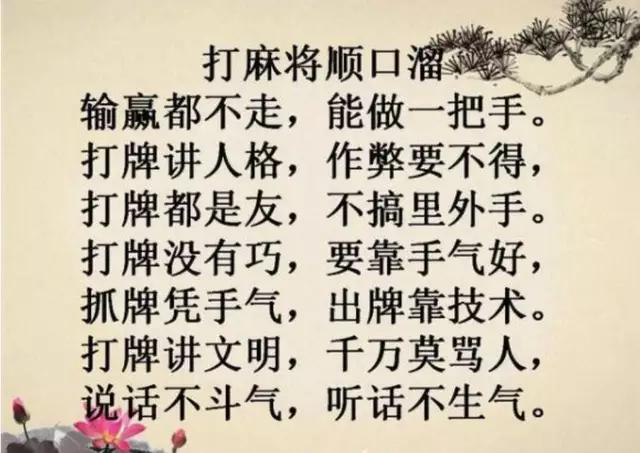 打麻将顺口溜
输赢都不走，能做一把手。
打牌讲人格，作弊要不得，
打牌都是友，不搞里外手。
打牌没有巧，要靠手气好，
抓牌凭手气，出牌靠技术。
打牌讲文明，千万莫骂人，
说话不斗气，听话不生气。